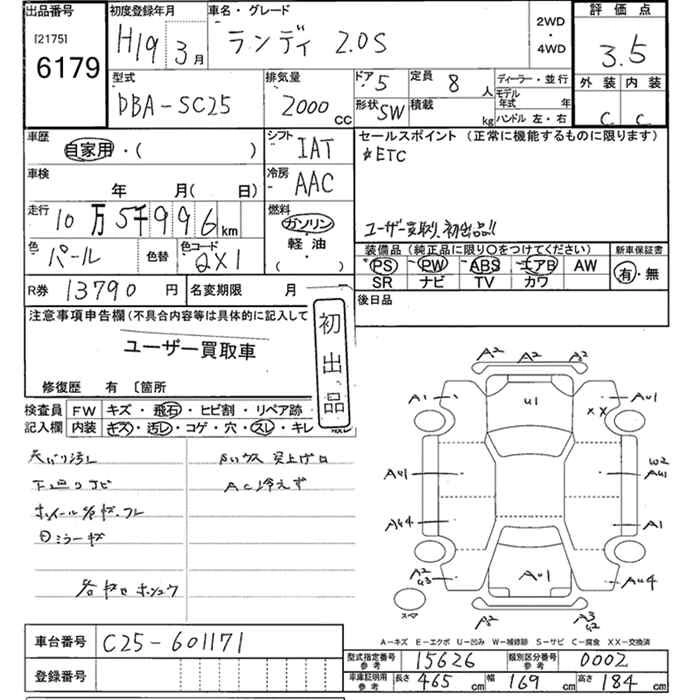 出品番号
[2175]
6179
初度登録年月
H19 3月
車名・グレード
ランディ 2.0S
2WD
・
4WD
評価点
3.5
外装 内装
C C
型式
DBA-SC25
排気量
2000 CC
ドア 5
定員 8 人
形状 SW
積載 kg
ディーラー・並行
モデル年式 年
ハンドル 左・右
車歴
自家用・( )
シフト IAT
セールスポイント (正常に機能するものに限ります)
☆ETC
ユーザー買取り、初出品!!
車検
年 月( 日)
冷房 AAC
走行
10万5千996km
燃料
ガソリン
軽油
( )
色 パール
色替
色コード
QX1
装備品 (純正品に限り○をつけてください)
PS PW ABS エアB AW
SR ナビ TV カワ
新車保証書
有・無
R券 13790 円
名変期限 月
後日品
注意事項申告欄(不具合内容等は具体的に記入して
ユーザー買取車
初出品
修復歴 有 〔箇所
検査員
記入欄
FW キズ・飛石・ヒビ割・リペア跡・
内装 キズ・汚レ・コゲ・穴・スレ・キレ
天バリ汚し
下廻りサビ
AC冷えず
ホイール各キズ、スレ
Dミラーキズ
A2 A2 A2
A1 U1 AU1
XX
AU1 W2
AU1
AU4 A1
A2
U3 AU1 AU4
スマ
A2 A3
U2
A－キズ E－エクボ U－凹み W－補修跡 S－サビ C－腐食 XX－交換済
車台番号 C25-601171
登録番号
型式指定番号
参考
15626
類別区分番号
参考
0002
車庫証明用
参考
長さ 465 cm 幅 169 cm 高さ 184 cm